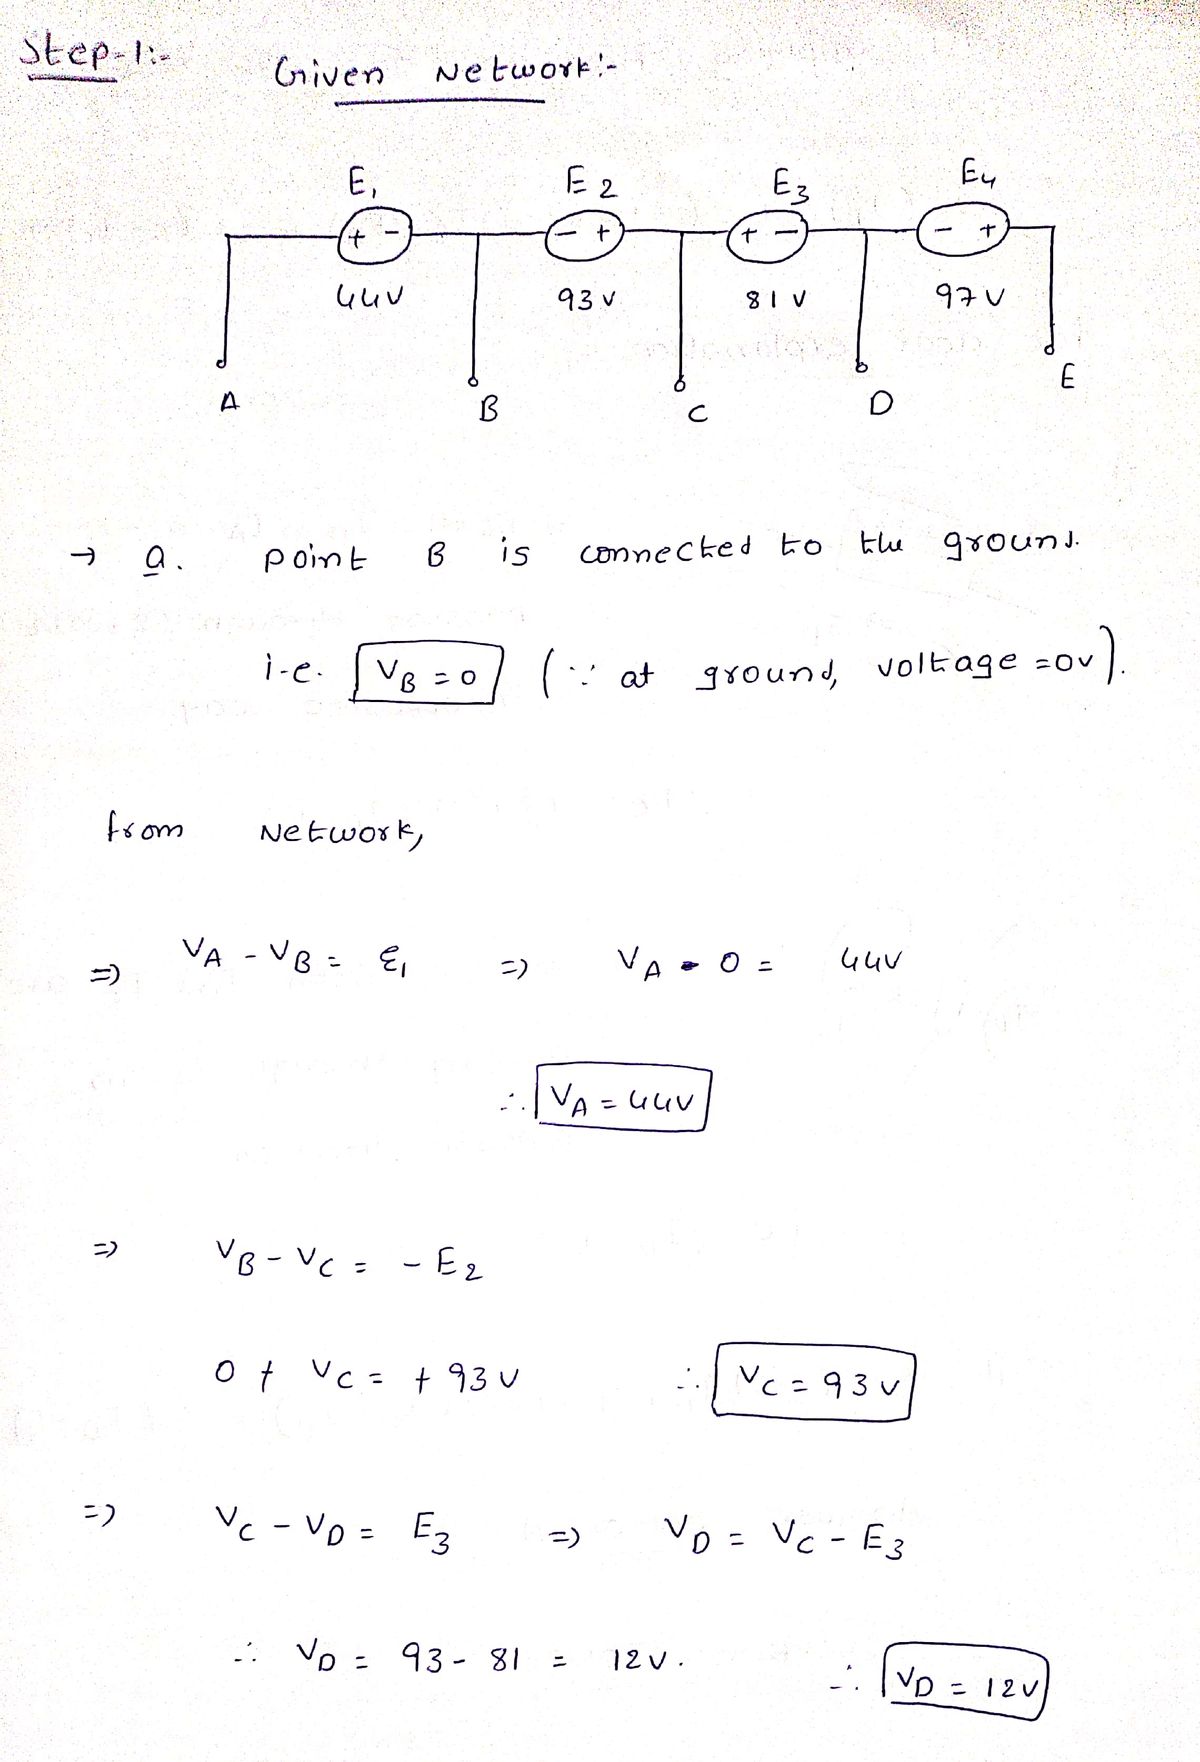 Step-1:-
Given Network:-
E1 E2 E3 E4
+ - - + + - - +
44V 93V 81V 97V
A B C D E
→ a. point B is connected to the ground.
i-e. VB = 0 (∵ at ground, voltage = 0v).
from Network,
⇒ VA - VB = ε1 ⇒ VA - 0 = 44V
∴ VA = 44V
⇒ VB - VC = - E2
0 + VC = + 93V ∴ VC = 93V
⇒ VC - VD = E3 ⇒ VD = VC - E3
∴ VD = 93 - 81 = 12V. ∴ VD = 12V